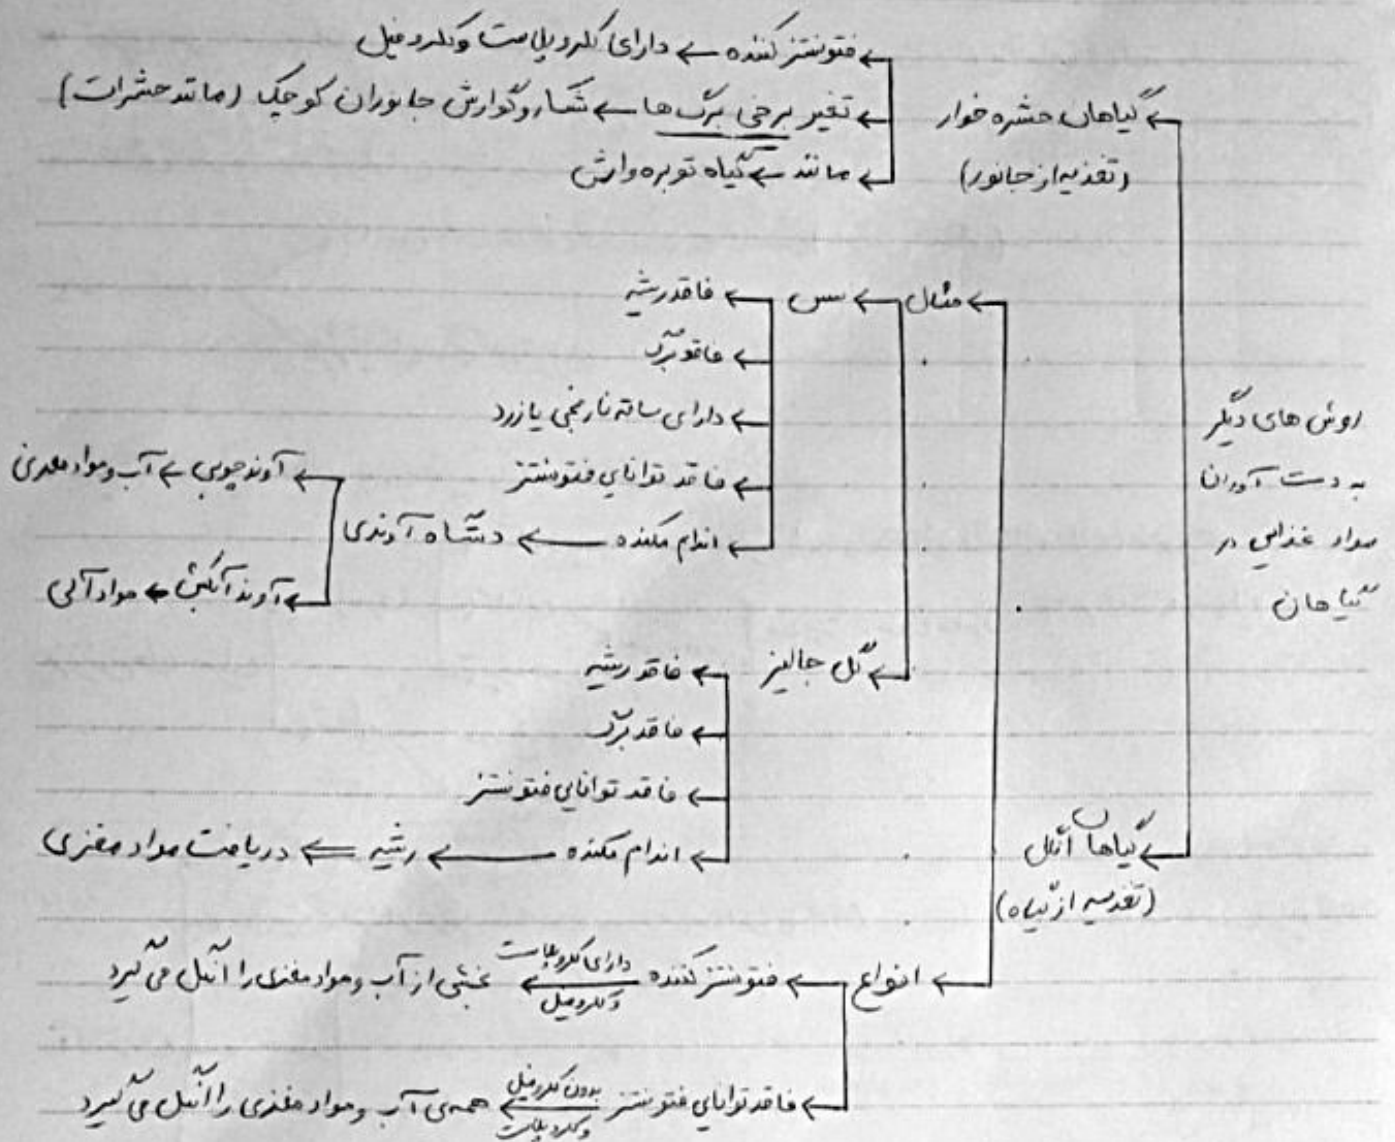 روش های دیگر
به دست آوردن
مواد غذایی در
گیاهان
گیاهان حشره خوار
(تغذیه از جانور)
فتوسنتز کننده ← دارای کلروپلاست و کلروفیل
تغییر برخی برگ ها ← شکار و گوارش جانوران کوچک (مانند حشرات)
مانند ← گیاه توبره واش
گیاهان انگل
(تغذیه از گیاه)
مثال ← سس ← فاقد ریشه
فاقد برگ
دارای ساقه نارنجی یا زرد
فاقد توانایی فتوسنتز
اندام مکنده ← دستگاه آوندی
آوند چوبی ← آب و مواد معدنی
آوند آبکش ← مواد آلی
گل جالیز ← فاقد ریشه
فاقد برگ
فاقد توانایی فتوسنتز
اندام مکنده ← ریشه ← دریافت مواد مغذی
انواع ← فتوسنتز کننده دارای کلروپلاست و کلروفیل ← بخشی از آب و مواد مغذی را انگل می گیرد
فاقد توانایی فتوسنتز بدون کلروفیل و کلروپلاست ← همه‌ی آب و مواد مغذی را انگل می گیرد